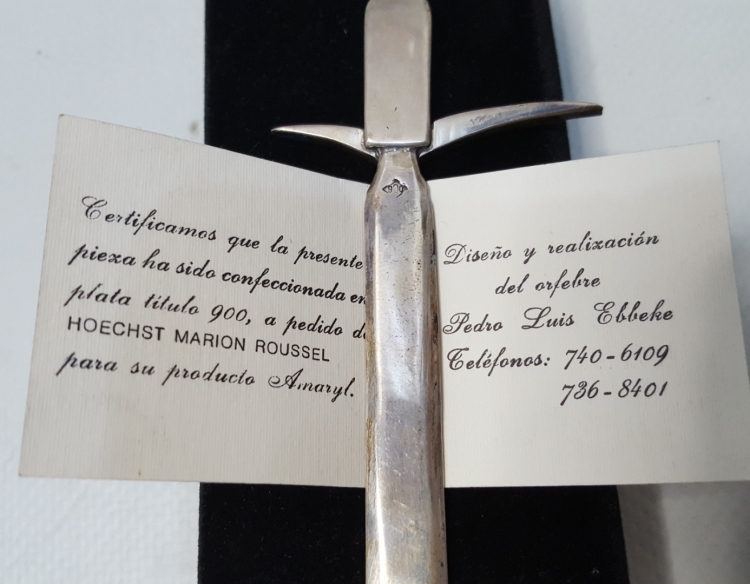 Certificamos que la presente
pieza ha sido confeccionada en
plata titulo 900, a pedido de
HOECHST MARION ROUSSEL
para su producto Amaryl.
Diseño y realización
del orfebre
Pedro Luis Ebbeke
Teléfonos: 740-6109
736-8401